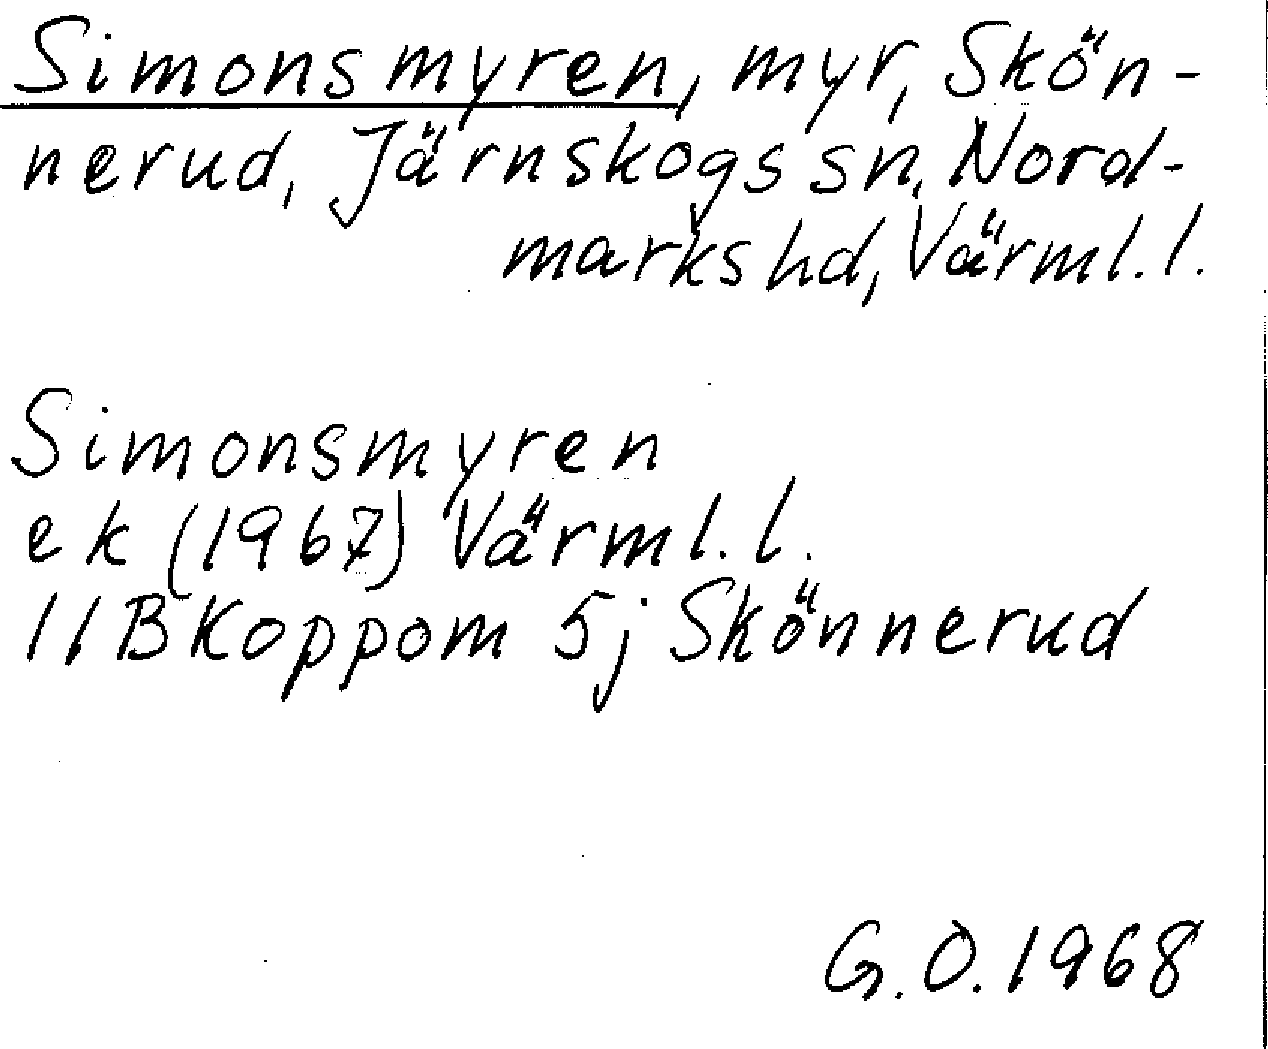 Simonsmyren, myr, Skön-
nerud, Järnskogs sn, Nord-
marks hd, Värml. l.
Simonsmyren
ek (1967) Värml. l.
11B Koppom 5j Skönnerud
G.O. 1968